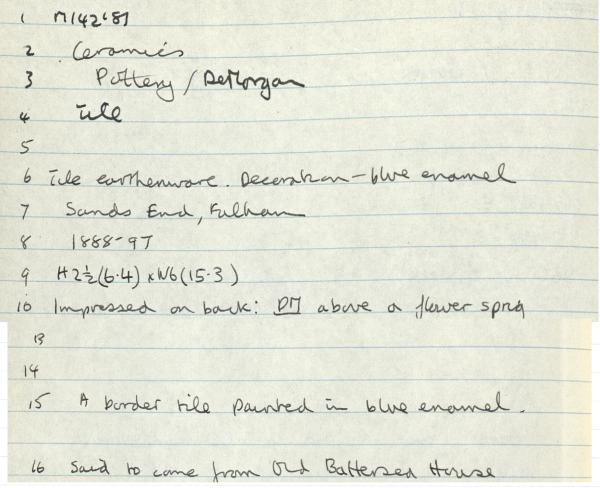 1 M142'81
2 Ceramics
3 Pottery / DeMorgan
4 Tile
5
6 Tile earthenware. Decoration - blue enamel
7 Sands End, Fulham
8 1888-97
9 H2½(6.4) x W6(15.3)
10 Impressed on back: DM above a flower sprig
13
14
15 A border tile painted in blue enamel.
16 Said to come from Old Battersea House